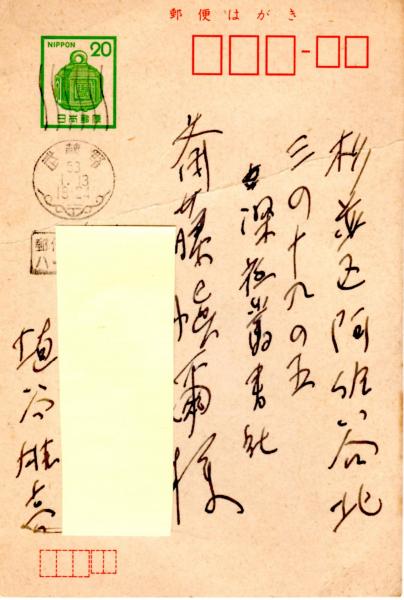 郵便はがき
NIPPON 20
日本郵便
武蔵野
53
18-24
郵便
杉並区阿佐谷北
三の十九の五
深夜叢書社
齋藤愼爾様
埴谷雄高